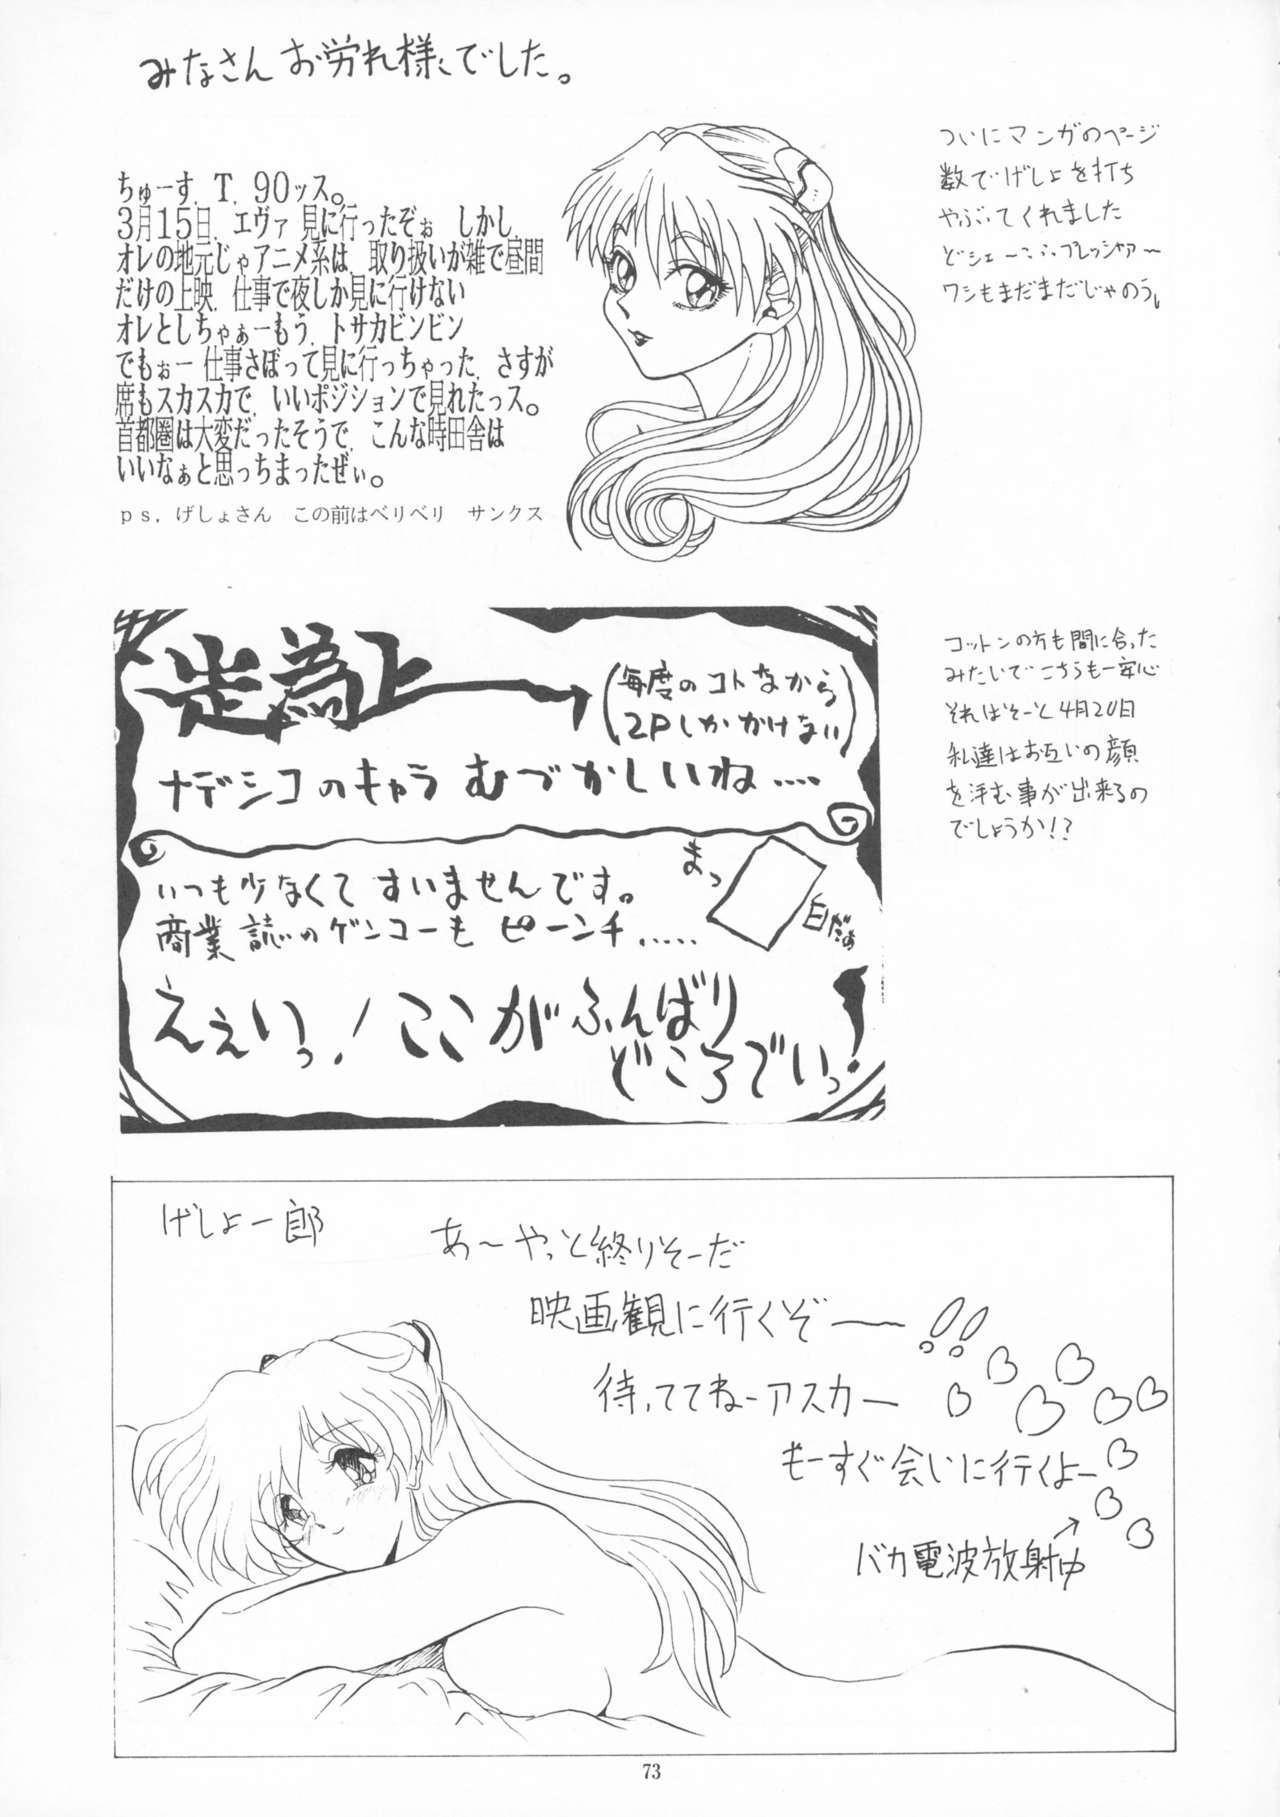 みなさん お労れ様でした。
ちゅーす. T. 90ッス。
3月15日. エヴァ 見に行ったぞぉ しかし.
オレの地元じゃアニメ系は 取り扱いが雑で昼間
だけの上映. 仕事で夜しか見に行けない
オレとしちゃぁーもう. トサカビンビン
でもぉー 仕事さぼって見に行っちゃった. さすが
席もスカスカで. いいポジションで見れたっス。
首都圏は大変だったそうで. こんな時田舎は
いいなぁと思っちまったぜぃ。
ps, げしょさん この前はベリベリ サンクス
ついにマンガのページ
数でげしょを打ち
やぶってくれました
どシェーこふふプレッシャァ〜
ワシもまだまだじゃのう。
走為上
(毎度のコトながら
2Pしかかけない)
ナデシコのキャラ むづかしいね....
いつも少なくて すいませんです。
商業誌のゲンコーも ピーンチ.....
まっ
白だぁ
ええいっ! ここがふんばり
どころでいっ!
コットンの方も間に合った
みたいで こちらも一安心
それはそーと 4月20日
私達はお互いの顔
を汗む事が出来るの
でしょうか!?
げしょ一郎
あ〜やっと終りそーだ
映画観に行くぞ——!!
待っててねーアスカー
もーすぐ会いに行くよー
バカ電波放射中
73